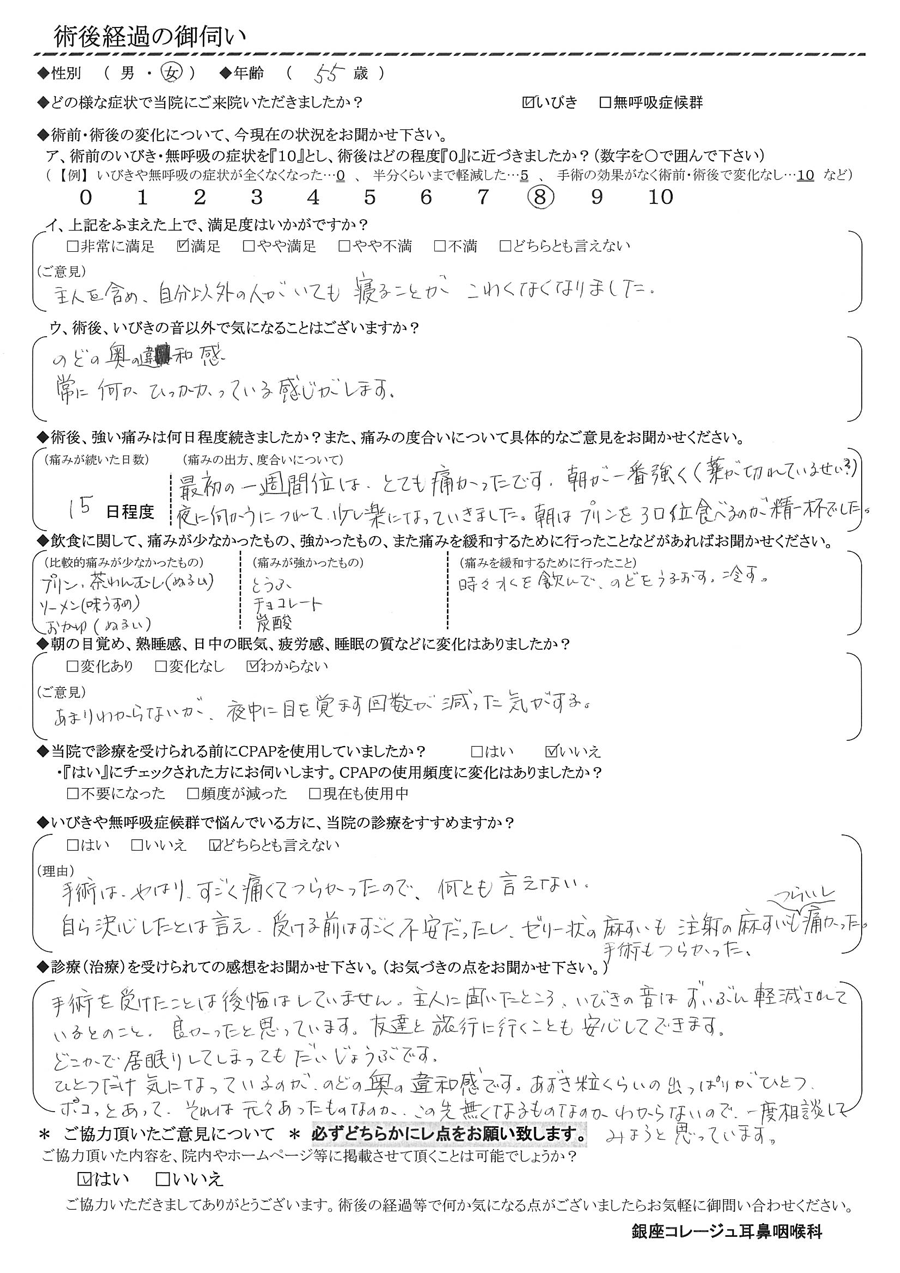 術後経過の御伺い
◆性別 （ 男 ・ 女 ） ◆年齢 （ 55 歳 ）
◆どの様な症状で当院にご来院いただきましたか？ ☑いびき □無呼吸症候群
◆術前・術後の変化について、今現在の状況をお聞かせ下さい。
ア、術前のいびき・無呼吸の症状を『10』とし、術後はどの程度『0』に近づきましたか？（数字を〇で囲んで下さい）
（ 【例】 いびきや無呼吸の症状が全くなくなった…0 、 半分くらいまで軽減した…5 、 手術の効果がなく術前・術後で変化なし…10 など）
0 1 2 3 4 5 6 7 8 9 10
イ、上記をふまえた上で、満足度はいかがですか？
□非常に満足 ☑満足 □やや満足 □やや不満 □不満 □どちらとも言えない
（ご意見）
主人を含め、自分以外の人がいても 寝ることが こわくなくなりました。
ウ、術後、いびきの音以外で気になることはございますか？
のどの奥の違和感
常に何か ひっかかっている感じがします。
◆術後、強い痛みは何日程度続きましたか？また、痛みの度合いについて具体的なご意見をお聞かせください。
（痛みが続いた日数） （痛みの出方、度合いについて）
最初の一週間位は、とても痛かったです。朝が一番強く（薬が切れているせい？）
15 日程度 夜に何かうにつれて、少し楽になっていきました。朝はプリンを30口位食べるのが精一杯でした。
◆飲食に関して、痛みが少なかったもの、強かったもの、また痛みを緩和するために行ったことなどがあればお聞かせください。
（比較的痛みが少なかったもの） （痛みが強かったもの） （痛みを緩和するために行ったこと）
プリン、茶わんむし（ぬるい） とうふ 時々水を飲んで、のどをうるおす。冷す。
ソーメン（味うすめ） チョコレート
おかゆ（ぬるい） 炭酸
◆朝の目覚め、熟睡感、日中の眠気、疲労感、睡眠の質などに変化はありましたか？
□変化あり □変化なし ☑わからない
（ご意見）
あまりわからないが、夜中に目を覚ます回数が減った気がする。
◆当院で診療を受けられる前にCPAPを使用していましたか？ □はい ☑いいえ
・『はい』にチェックされた方にお伺いします。CPAPの使用頻度に変化はありましたか？
□不要になった □頻度が減った □現在も使用中
◆いびきや無呼吸症候群で悩んでいる方に、当院の診療をすすめますか？
□はい □いいえ ☑どちらとも言えない
（理由）
手術は、やはり、すごく痛くてつらかったので、何とも言えない。
つらいし
自ら決心したとは言え、受ける前はすごく不安だったし、ゼリー状の麻すいも 注射の麻すいも痛かった。
手術もつらかった。
◆診療（治療）を受けられての感想をお聞かせ下さい。（お気づきの点をお聞かせ下さい。）
手術を受けたことは後悔はしていません。主人に聞いたところ、いびきの音は ずいぶん軽減されて
いるとのこと、良かったと思っています。友達と旅行に行くことも安心してできます。
どこかで居眠りしてしまっても だいじょうぶです。
ひとつだけ気になっているのが、のどの奥の違和感です。あずき粒くらいの出っぱりがひとつ、
ポコっとあって、それは元々あったものなのか、この先無くなるものなのかわからないので、一度相談して
みようと思っています。
＊ ご協力頂いたご意見について ＊ 必ずどちらかにレ点をお願い致します。
ご協力頂いた内容を、院内やホームページ等に掲載させて頂くことは可能でしょうか？
☑はい □いいえ
ご協力いただきましてありがとうございます。術後の経過等で何か気になる点がございましたらお気軽に御問い合わせください。
銀座コレージュ耳鼻咽喉科